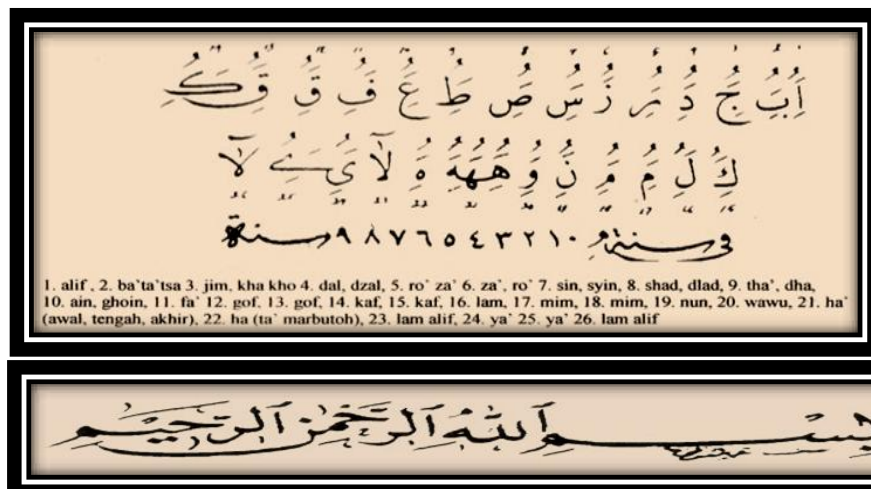 ا ب ج د ر ز س ص ط ع ف ق ق ك
ك ل م م ن و ههه ه لا ي ے لا
في سنة ٠ ١ ٢ ٣ ٤ ٥ ٦ ٧ ٨ ٩ سنة
1. alif , 2. ba`ta`tsa 3. jim, kha kho 4. dal, dzal, 5. ro` za` 6. za`, ro` 7. sin, syin, 8. shad, dlad, 9. tha', dha,
10. ain, ghoin, 11. fa` 12. gof, 13. gof, 14. kaf, 15. kaf, 16. lam, 17. mim, 18. mim, 19. nun, 20. wawu, 21. ha`
(awal, tengah, akhir), 22. ha (ta` marbutoh), 23. lam alif, 24. ya` 25. ya` 26. lam alif
بسم الله الرحمن الرحيم